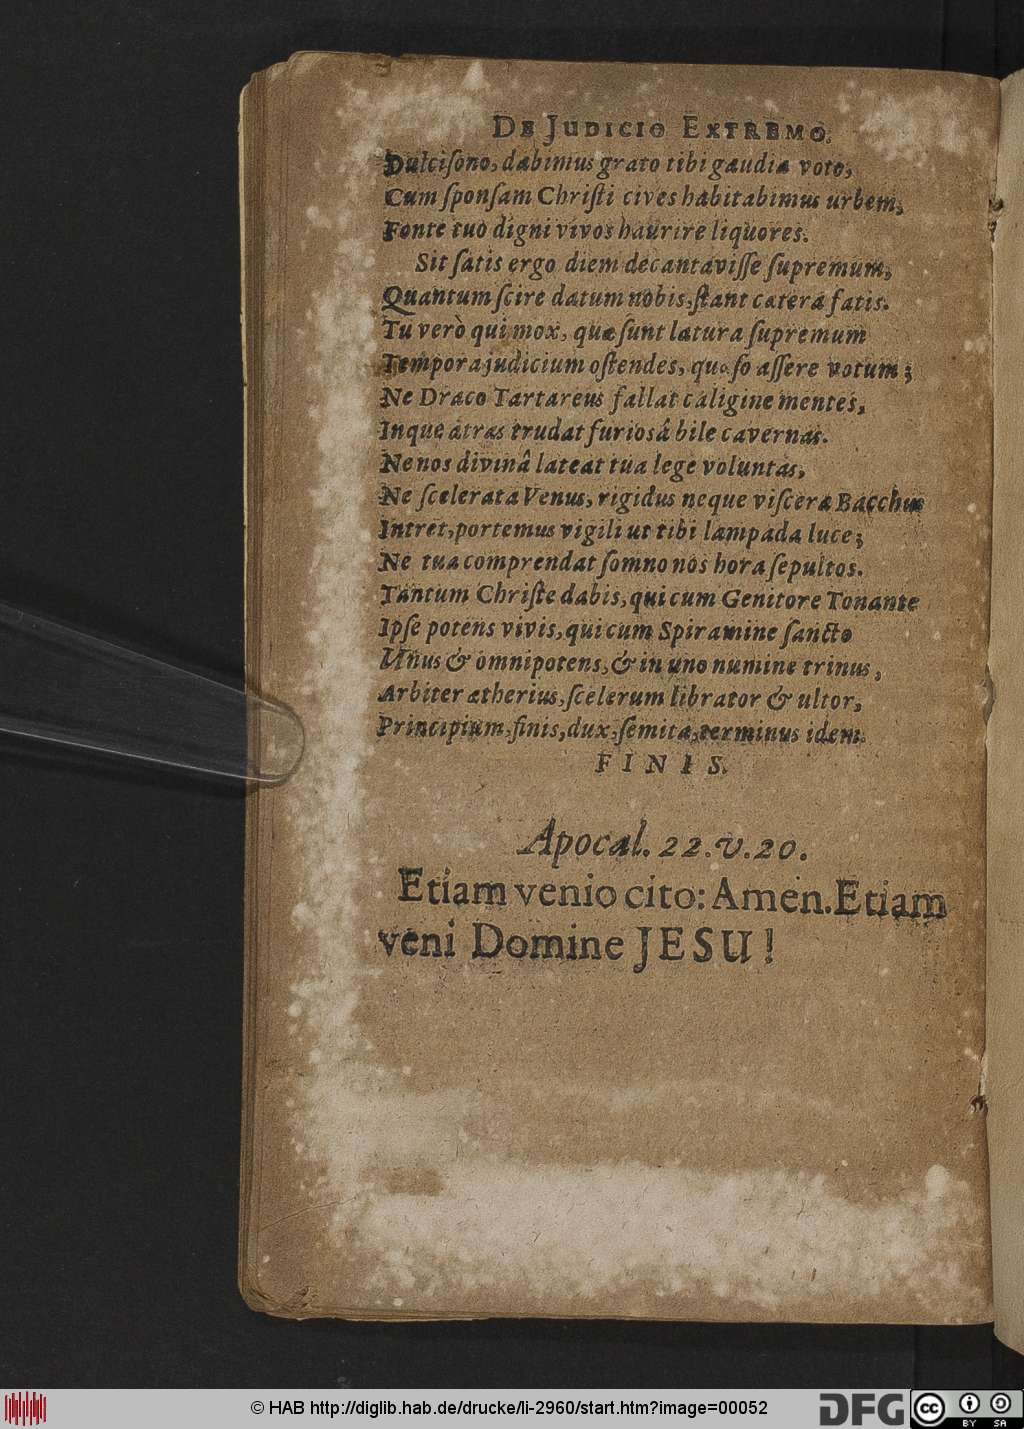 DE JUDICIO EXTREMO.
Dulcisono, dabimus grato tibi gaudia voto,
Cum sponsam Christi cives habitabimus urbem,
Fonte tuo digni vivos haurire liquores.
Sit satis ergo diem decantavisse supremum,
Quantum scire datum nobis, stant cætera fatis.
Tu verò qui mox, quæ sunt latura supremum
Tempora judicium ostendes, quæso assere votum;
Ne Draco Tartareus fallat caligine mentes,
Inque atras trudat furiosâ bile cavernas.
Ne nos divinâ lateat tua lege voluntas,
Ne scelerata Venus, rigidus neque viscera Bacchus
Intret, portemus vigili ut tibi lampada luce;
Ne tua comprendat somno nos hora sepultos.
Tantum Christe dabis, qui cum Genitore Tonante
Ipse potens vivis, qui cum Spiramine sancto
Unus & omnipotens, & in uno numine trinus,
Arbiter ætherius, scelerum librator & ultor,
Principium, finis, dux, semita, terminus idem.
FINIS.
Apocal. 22. v. 20.
Etiam venio cito: Amen. Etiam
veni Domine JESU!
© HAB http://diglib.hab.de/drucke/li-2960/start.htm?image=00052
DFG
cc
BY SA